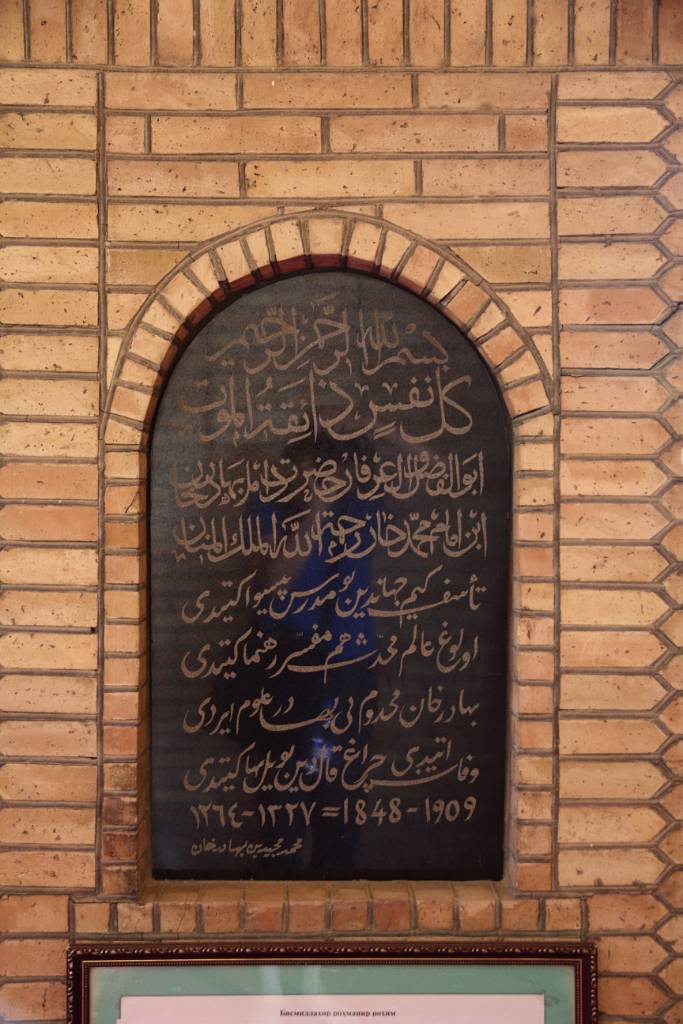 بسم الله الرحمن الرحيم
كل نفسٍ ذائقةُ الموت
ابوالفضل والعرفان حضرت داملا بهادرخان
ابن امام محمد خان رحمة الله الملك المنان
تأسف کیم جهاندین بو مدرس پیسوا کیتدی
اولوغ عالم محدث هم مفسر رهنما کیتدی
بهادرخان مخدوم لی در علوم ایردی
وفات ایتدی چراغ دین بویل کیتدی
١٢٦٤-١٣٢٧ = 1848-1909
محمد مجید بن بهادرخان
Бисмиллаҳир роҳманир роҳим